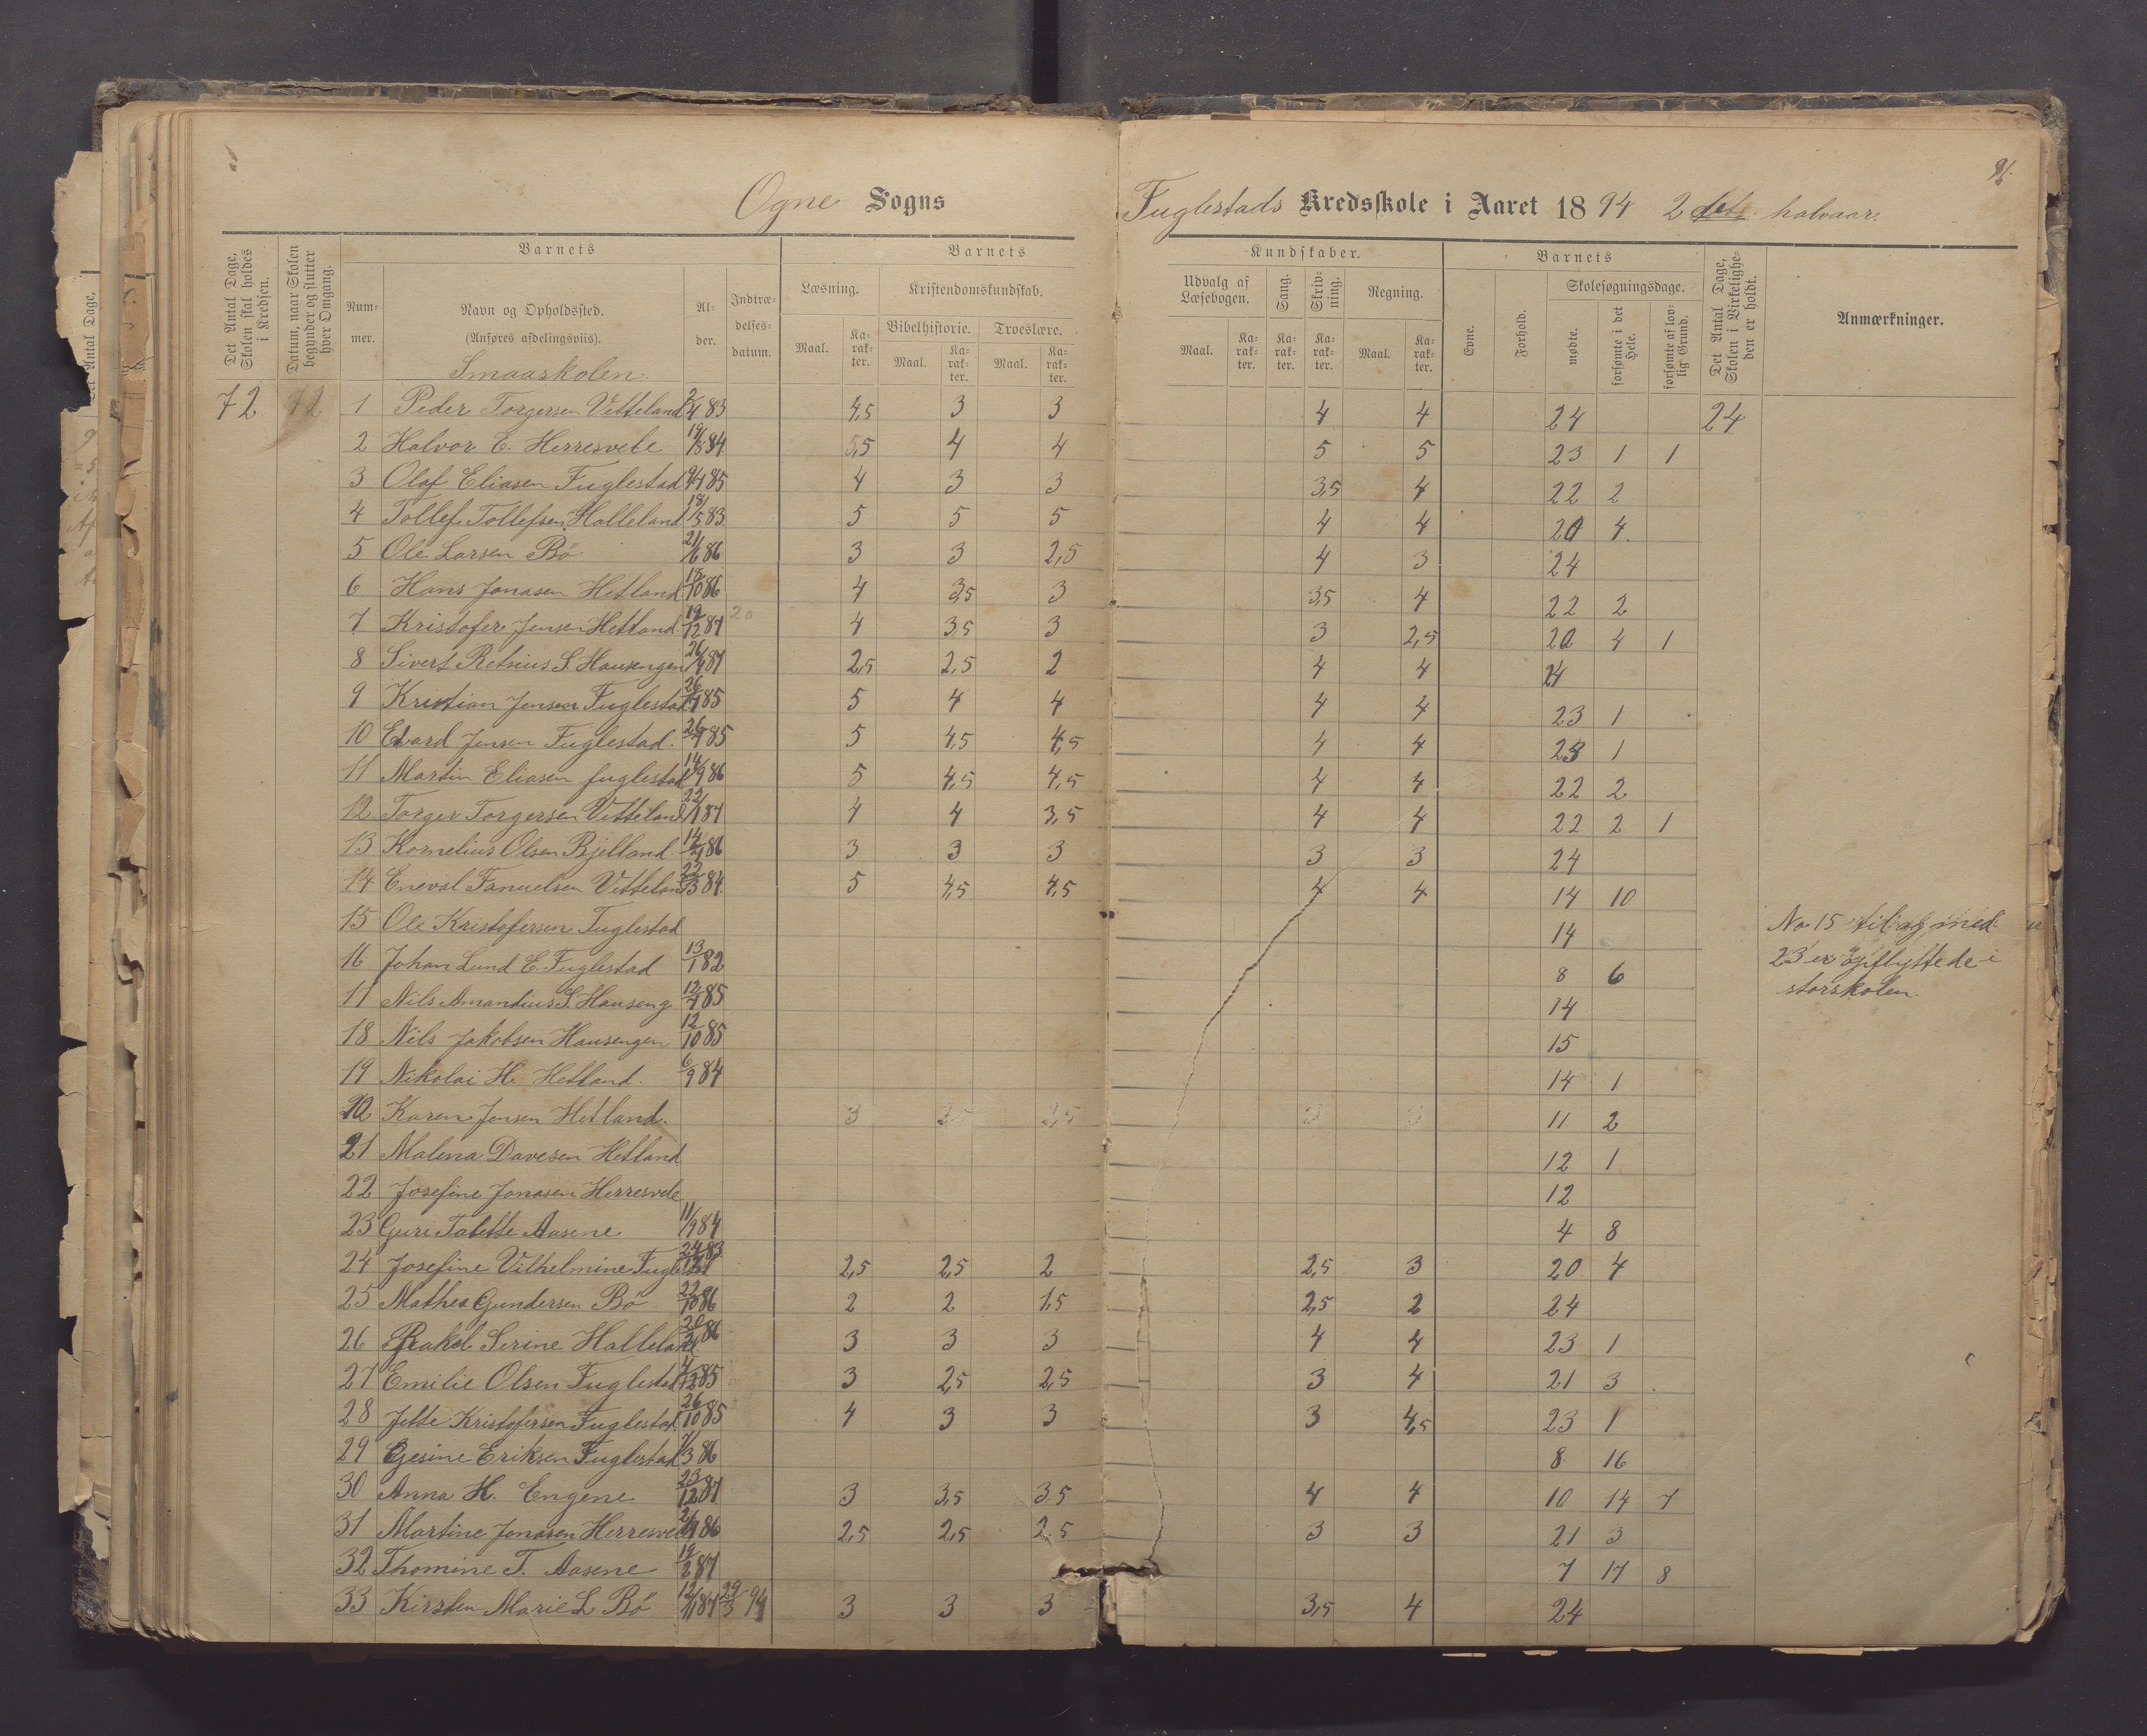 91.
Ogne Sogns Fuglestads Kredsskole i Aaret 1894 2det halvaar.
Det Antal Dage, Skolen skal holdes i Kredsen.
Datum, naar Skolen begynder og slutter hver Omgang.
Barnets Barnets Kundskaber. Barnets
Nummer. Navn og Opholdssted. (Anføres afdelingsviis). Alder. Indtrædelsesdatum.
Læsning. Maal. Karakter.
Kristendomskundskab. Bibelhistorie. Maal. Karakter. Troeslære. Maal. Karakter.
Udvalg af Læsebogen. Maal. Karakter. Sang. Karakter. Skrivning. Karakter. Regning. Maal. Karakter.
Evne. Forhold. Skolesøgningsdage. mødte. forsømte i det Hele. forsømte af lovlig Grund.
Det Antal Dage, Skolen i Virkeligheden er holdt.
Anmærkninger.
Smaaskolen.
72 72 1 Peder Torgersen Vetteland 2/4 83 4,5 3 3 4 4 24 24
2 Halvor E. Herresvele 19/8 84 5,5 4 4 5 5 23 1 1
3 Olaf Eliasen Fuglestad 9/4 85 4 3 3 3,5 4 22 2
4 Tollef Tollefsen Halleland 18/5 83 5 5 5 4 4 20 4
5 Ole Larsen Bø 21/6 86 3 3 2,5 4 3 24
6 Hans Jonasen Hetland 18/10 86 4 3,5 3 3,5 4 22 2
7 Kristofer Jensen Hetland 19/12 87 20 4 3,5 3 3 2,5 20 4 1
8 Sivert Retsius S. Hausengen 26/4 87 2,5 2,5 2 4 4 24
9 Kristian Jensen Fuglestad 85 5 4 4 4 4 23 1
10 Edvard Jensen Fuglestad. 85 5 4,5 4,5 4 4 23 1
11 Martin Eliasen fuglestad 14/9 86 5 4,5 4,5 4 4 22 2
12 Torger Torgersen Vetteland 22/1 87 4 4 3,5 4 4 22 2 1
13 Kornelius Olsen Bjelland 86 3 3 3 3 3 24
14 Eneval Fanuelsen Vetteland 22/3 84 5 4,5 4,5 4 4 14 10
15 Ole Kristofersen Fuglestad 14 No 15 til og med
16 Johan Lund E. Fuglestad 13/1 82 8 6 23 er opflyttede i
17 Nils Amandius S. Hauseng 85 14 storskolen.
18 Nils Jakobsen Hausengen 12/10 85 15
19 Nikolai H. Hetland. 6/9 84 14 1
20 Karen Jensen Hetland. 3 2,5 2,5 3 3 11 2
21 Malena Davesen Hetland 12 1
22 Josefine Jonasen Herresvele 12
23 Guri Tabette Aasene 11/9 84 4 8
24 Josefine Vilhelmine Fuglestad 83 2,5 2,5 2 2,5 3 20 4
25 Mathea Gundersen Bø 22/10 86 2 2 1,5 2,5 2 24
26 Rakel Serine Halleland 86 3 3 3 4 4 23 1
27 Emilie Olsen Fuglestad 4/12 85 3 2,5 2,5 3 4 21 3
28 Jette Kristofersen Fuglestad 26/10 85 4 3 3 3 4,5 23 1
29 Gesine Eriksen Fuglestad 7/3 86 8 16
30 Anna H. Engene 23/12 87 3 3,5 3,5 4 4 10 14 7
31 Martine Jonasen Herresvele 86 2,5 2,5 2,5 3 3 21 3
32 Thomine T. Aasene 19/2 87 7 17 8
33 Kirsten Marie L Bø 12/11 87 29/3 94 3 3 3 3,5 4 24